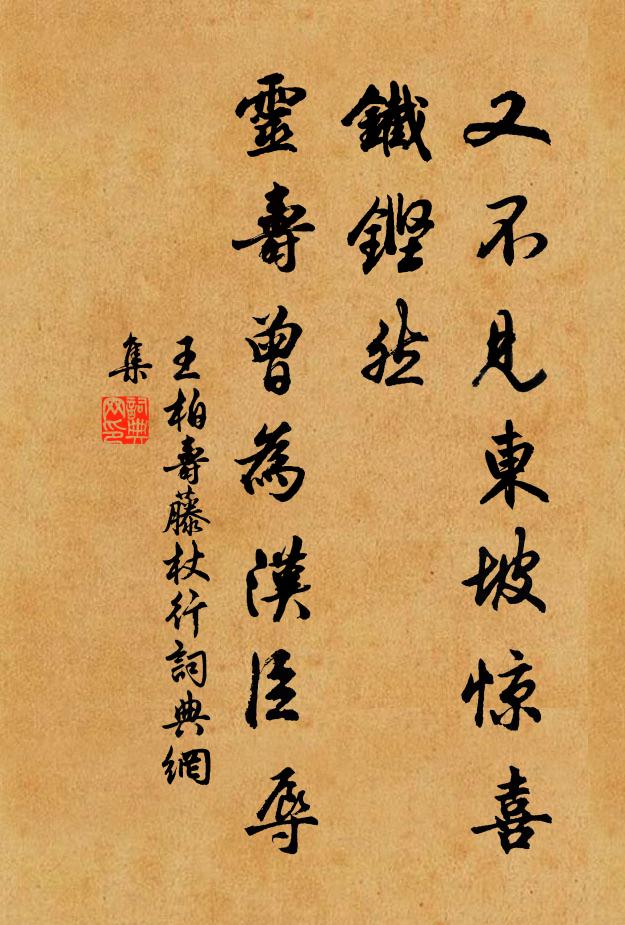 又不見東坡惊喜
鐵鏗然
靈壽曾為漢臣辱
王柏壽藤杖行詞典網
集
詞典網印